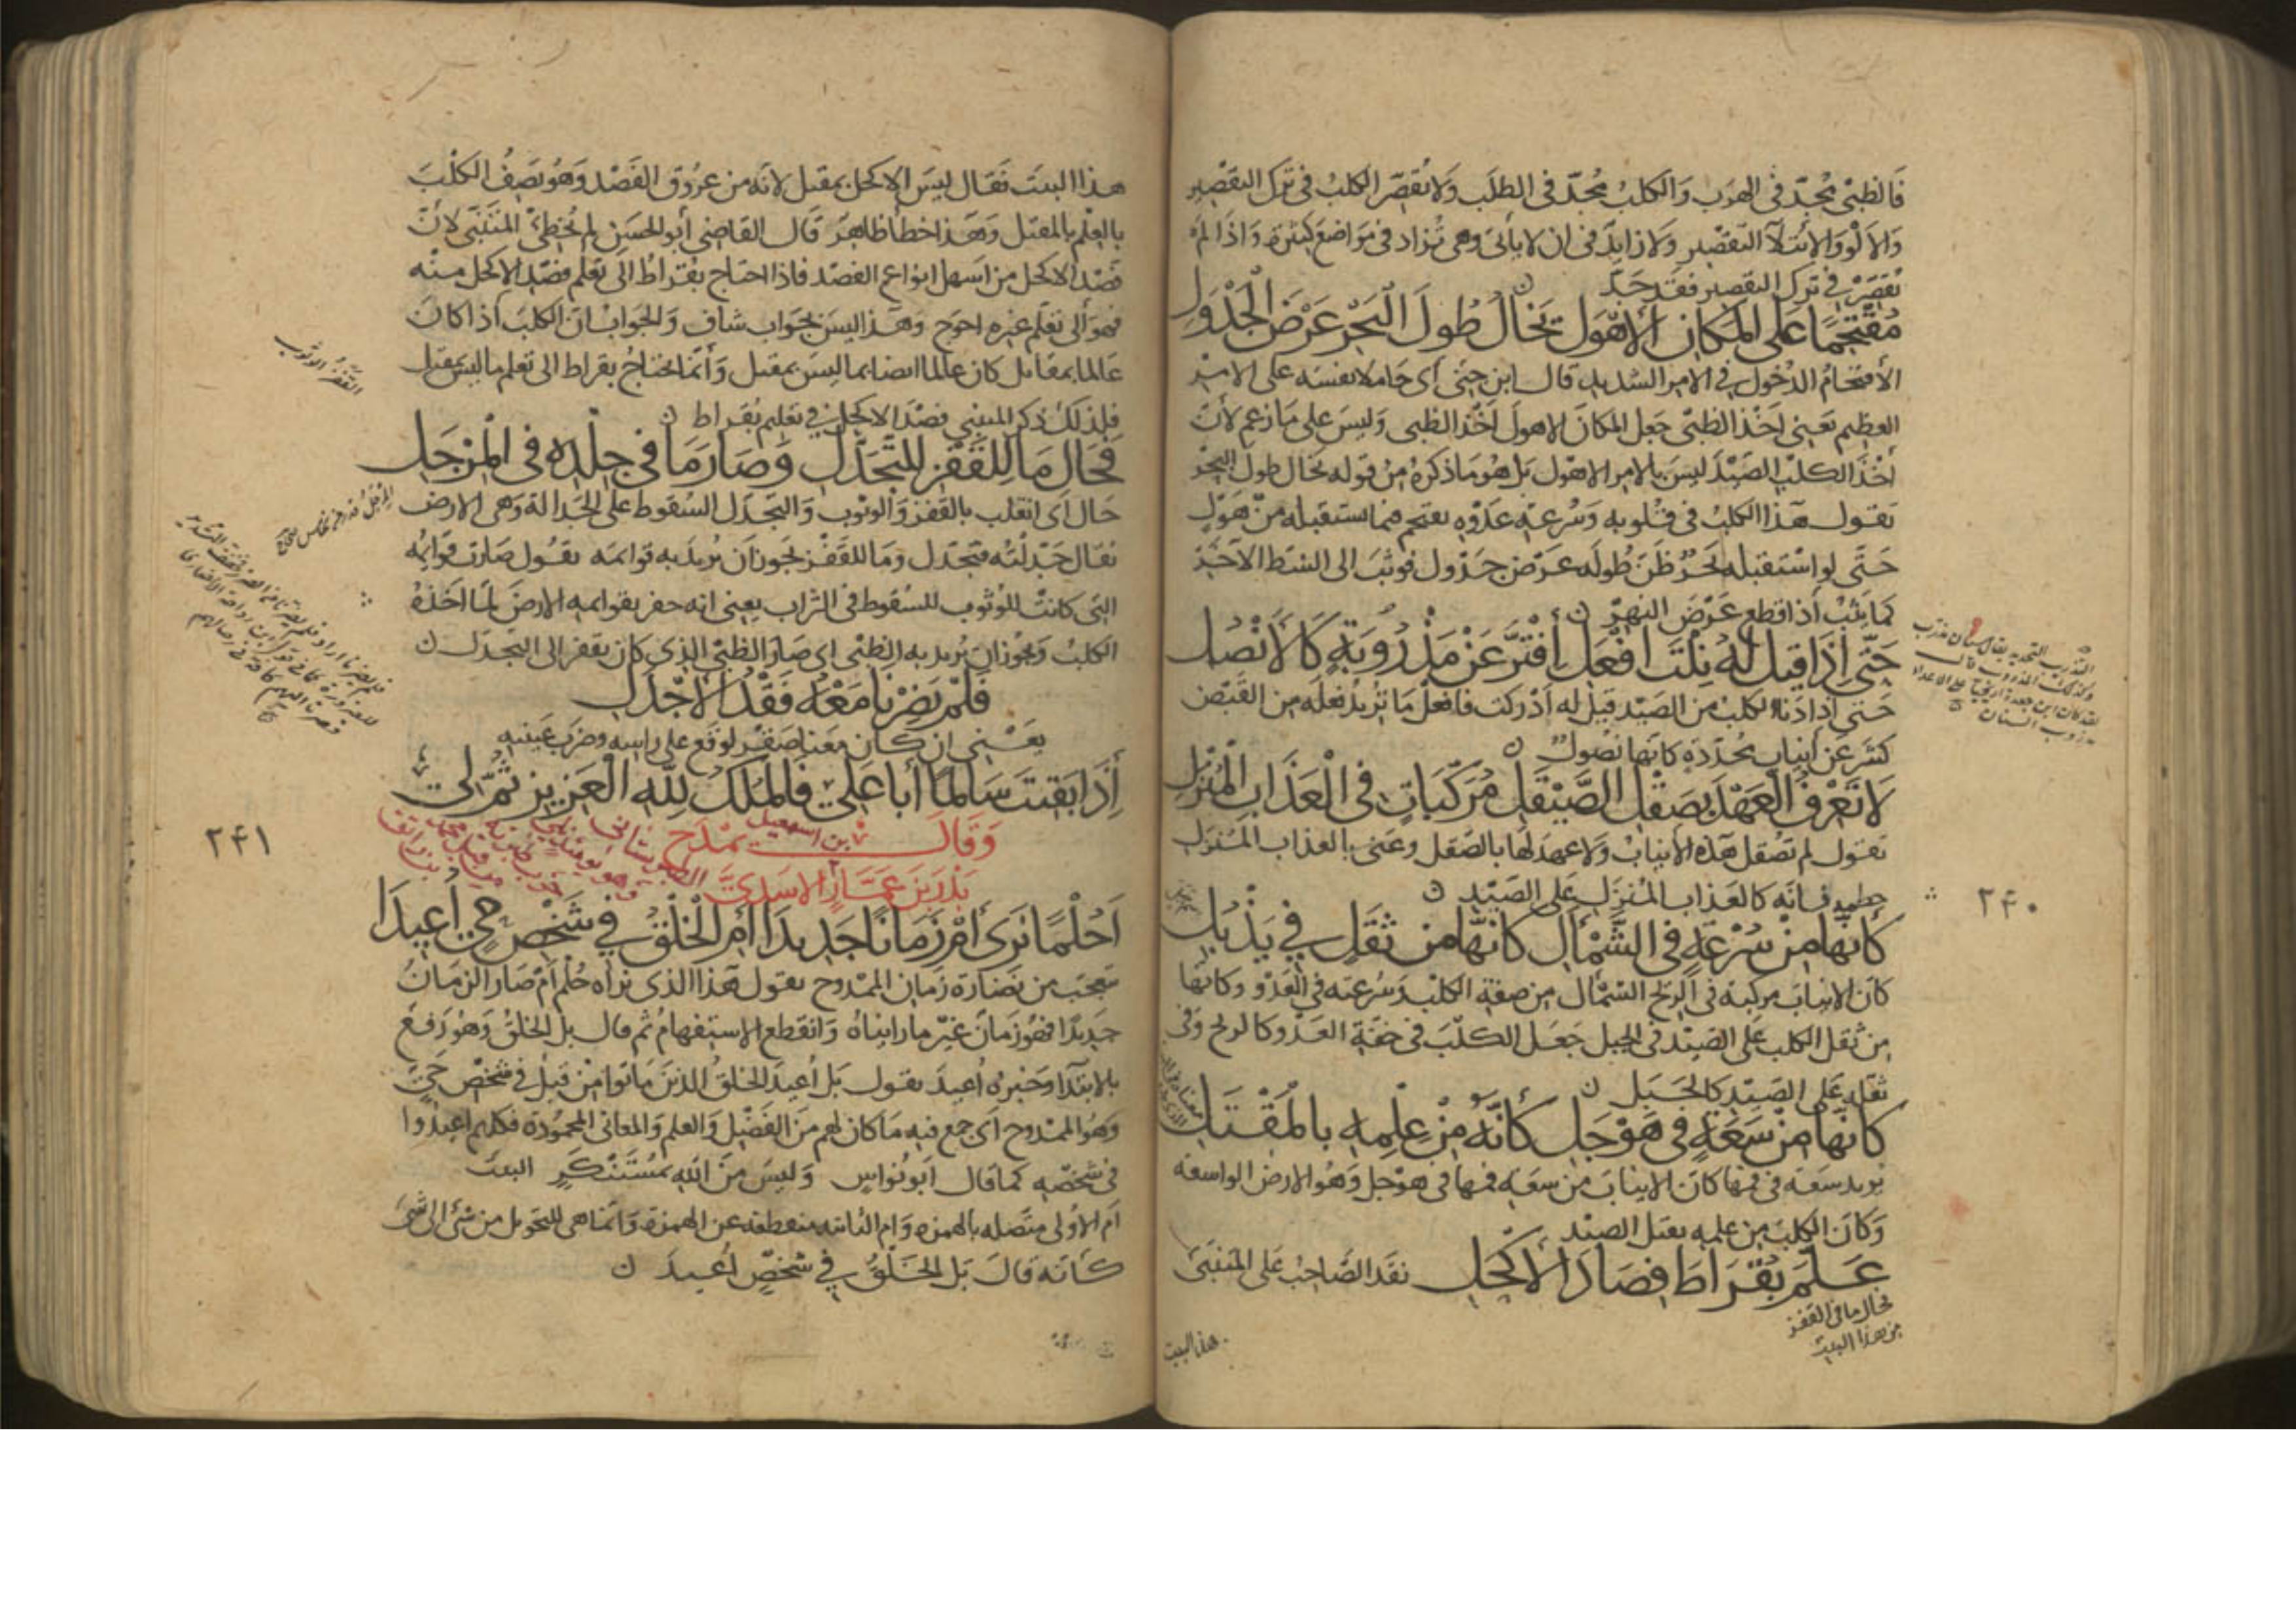 فَالظبيُ مُجِدّ في الهرَب وَالكلبُ مُجدّ في الطلَب وَلا يُقصّر الكلبُ في تَرك التقصير
وَالاَلْوُ وَالائتلآ التقصير وَلا زايدة في ان لا يأتلي وهي تُزاد في مَواضعَ كثيرة وَاذا لم
يُقصّرْ في ترك التقصير فقَد جَدّ
مُقْتَحِمًا عَلَى المَكانِ الأَهْوَلِ يَخَالُ طُولَ الْبَحْرِ عَرْضَ الْجَدْوَلِ
الأقتحَامُ الدُخول في الامر الشديد قال ابن جني أى حَاملا نفسَه على الامر
العظيم يَعني اَخْذ الظبيّ جعل المكانَ الاهولَ اَخْذ الظبى وَليسَ على مَا زعم لأنّ
اَخْذَ الكلبِ الصَيْدَ ليسَ بالامر الاهوَل بَل هُو مَا ذكرهُ مِن قوله يخال طولَ البحْر
يقول هَذا الكلبُ في وَسُرعَة عَدْوه يقتحم فيما يستقبله منْ هَوْلٍ
حَتّى لو اسْتقبله بَحرٌ ظنّ طُولَه عرْضَ جَدْول فوثبَ الى الشط الآخَر
كمَا يَثِبُ اذا قطع عَرْضَ النهر ن
حَتّى إذَا قيلَ لَهُ نِلْتَ افْعَلِ اِفْتَرَّ عَنْ مَذْرُوبَةٍ كَالأَنْصُلِ
حَتى اذا دَنا الكلبُ من الصَيْد قيل له اَدْركتَ فافعلْ مَا تريدُ فعلَه من القَبْض
كشَر عَن أنيابٍ مُحَدّدَةٍ كانهَا نُصُولٌ ن
لاَ تَعْرِفُ العَهْدَ بِصَقْلِ الصَّيْقَلِ مُرَكَّبَاتٍ فِى الْعَذَابِ الْمُنْزَلِ
يقول لم تُصقل هَذه الانيابُ وَلا عهدَ لهَا بالصّقل وعَنى بالعذاب المُنزل
خطمه فانّه كالعَذاب المُنزَل عَلى الصَيْد ن
كأَنَّهَا مِنْ سُرْعَةٍ فِى الشَّمْأَلِ كَأَنَّهَا مِنْ ثِقَلٍ فِي يَذْبُلِ
كانَ الانيابَ مركبة في الريح الشمأل من صفة الكلب وَسُرعته في العَدْو وكانها
من ثقل الكلب عَلى الصَيْد في الجبل جَعَل الكلبَ في خفة العَدْو كالريح وَفى
ثقله عَلى الصَيْد كالجَبَل ن
كَأنَّهَا مِنْ سَعَةٍ فِى هَوْجَلِ كَأَنَّهُ مِنْ عِلْمِهِ بِالْمَقْتَلِ
يُريد سَعَة في فمها كانَ الانيابَ من سَعَة فمها في هَوْجل وَهُو الارضُ الواسعة
وَكانَ الكلبَ من علمه بقتل الصيْد
عَلَّمَ بُقْرَاطَ فِصَادَ الأَكْحَلِ نقدَ الصَّاحبُ عَلى المتنبّى
فحال ما في القفز
من هذا البيت
هذا البيت
التذريب التحديد يقال سنان مذرب
وكذلك المذروب قال
لقد كان ابن جعدة اريحيا على الاعداء
مذروب السنان
٢٤٠
هذا البيتَ فقال ليسَ الاكحل بمقتل لانه من عرُوق الفَصْد وَهُو يَصِفُ الكلْبَ
بالعِلْم بالمقتل وَهَذا خطأ ظاهرٌ قَال القاضى أبو الحسَن لم يُخطئ المتَنَبّى لأنّ
فَصْد الاكحل من اَسهل انواع الفصْد فاذا احتاج بُقراطُ الى تعلّم فصْد الاكحل منْه
فهو الى تعلّم غيره احوج وَهذا ليسَ بجَواب شافٍ وَالجَوابُ انّ الكلبَ اذا كانَ
عَالما بمقاتل كان عالما ايضا بما ليسَ بمقتل وَانما يحتاجُ بقراط الى تعلم ما ليس بمقتل
فلذلك ذكر المتنبي فصْدَ الاكحل في تعليم بُقراط ن
فَحَالَ مَا لِلْقَفْزِ لِلتَّجَدُّلِ وَصَارَ مَا فِي جِلْدِهِ فِى الْمِرْجَلِ
حَال اَى انقلبَ بالقَفز وَالوثوب وَالتجَدّل السُقوط على الجَدالة وَهى الارض
يقال جَدّلتُه فتجدّل ومَا للقفْز يجوز اَن يُريدَ به قوائمَه يقُول صَارت قوائِمُه
التى كانتْ للوُثوب للسُقوط في التراب يعني انه حفر بقوائمه الارضَ لمّا اخذهُ
الكلبُ وَيجُوز ان يُريد به الظبْى اى صَارَ الظبْى الذى كان يقفز الى التجدّل ن
فَلَمْ يَضِرْنَا مَعْهُ فَقْدُ الأَجْدَلِ
يَعْني ان كان مَعنا صَقر لوقع على راسه وضرَب عينيه
إِذَا بَقيتَ سَالِمًا أَبَا عَلِيٍّ فَالْمُلْكُ لِلّهِ الْعَزِيزِ ثُمَّ لِي
وَقَال بن اسمعيل يَمْدَح
بَدْرَ بْنَ عَمَّارٍ الاسَديَّ
أَحُلْمًا نَرَى أَمْ زَمَانًا جَدِيدَا أَمِ الْخَلْقُ فِي شَخْصِ حَيٍّ أُعِيدَا
يتعجّبُ من نَضارَة زَمان الممْدوح يقول هَذا الذي نراه حُلْم اَم صَار الزمانُ
جديدًا فهُو زَمانٌ غيرُ ما رايناهُ وَانقطع الاستفهامُ ثم قال بل الخلقُ وَهُو رَفعٌ
بالابتدا وَخبرُه اُعيدَ يقول بَل أُعيدَ الخلقُ الذينَ مَاتوا منْ قبلُ في شخص حَيّ
وَهُو الممْدوح اَى جمع فيه مَا كان لهم من الفَضْل وَالعلم وَالمعانى المحمُودة فكلهم اعيدُوا
فى شخصه كمَا قال اَبو نُواس وَليسَ منَ اللهِ بمُسْتَنْكَرٍ البيت
اَم الأولى متّصله بالهمزه وَام الثانيه منقطعة عن الهمزة وَانما هى للتحويل من شئ الى شئ
كأنه قالَ بَل الخلقُ في شخصٍ أُعيدَ ن
القَفْزُ الوثوب
٢٤١